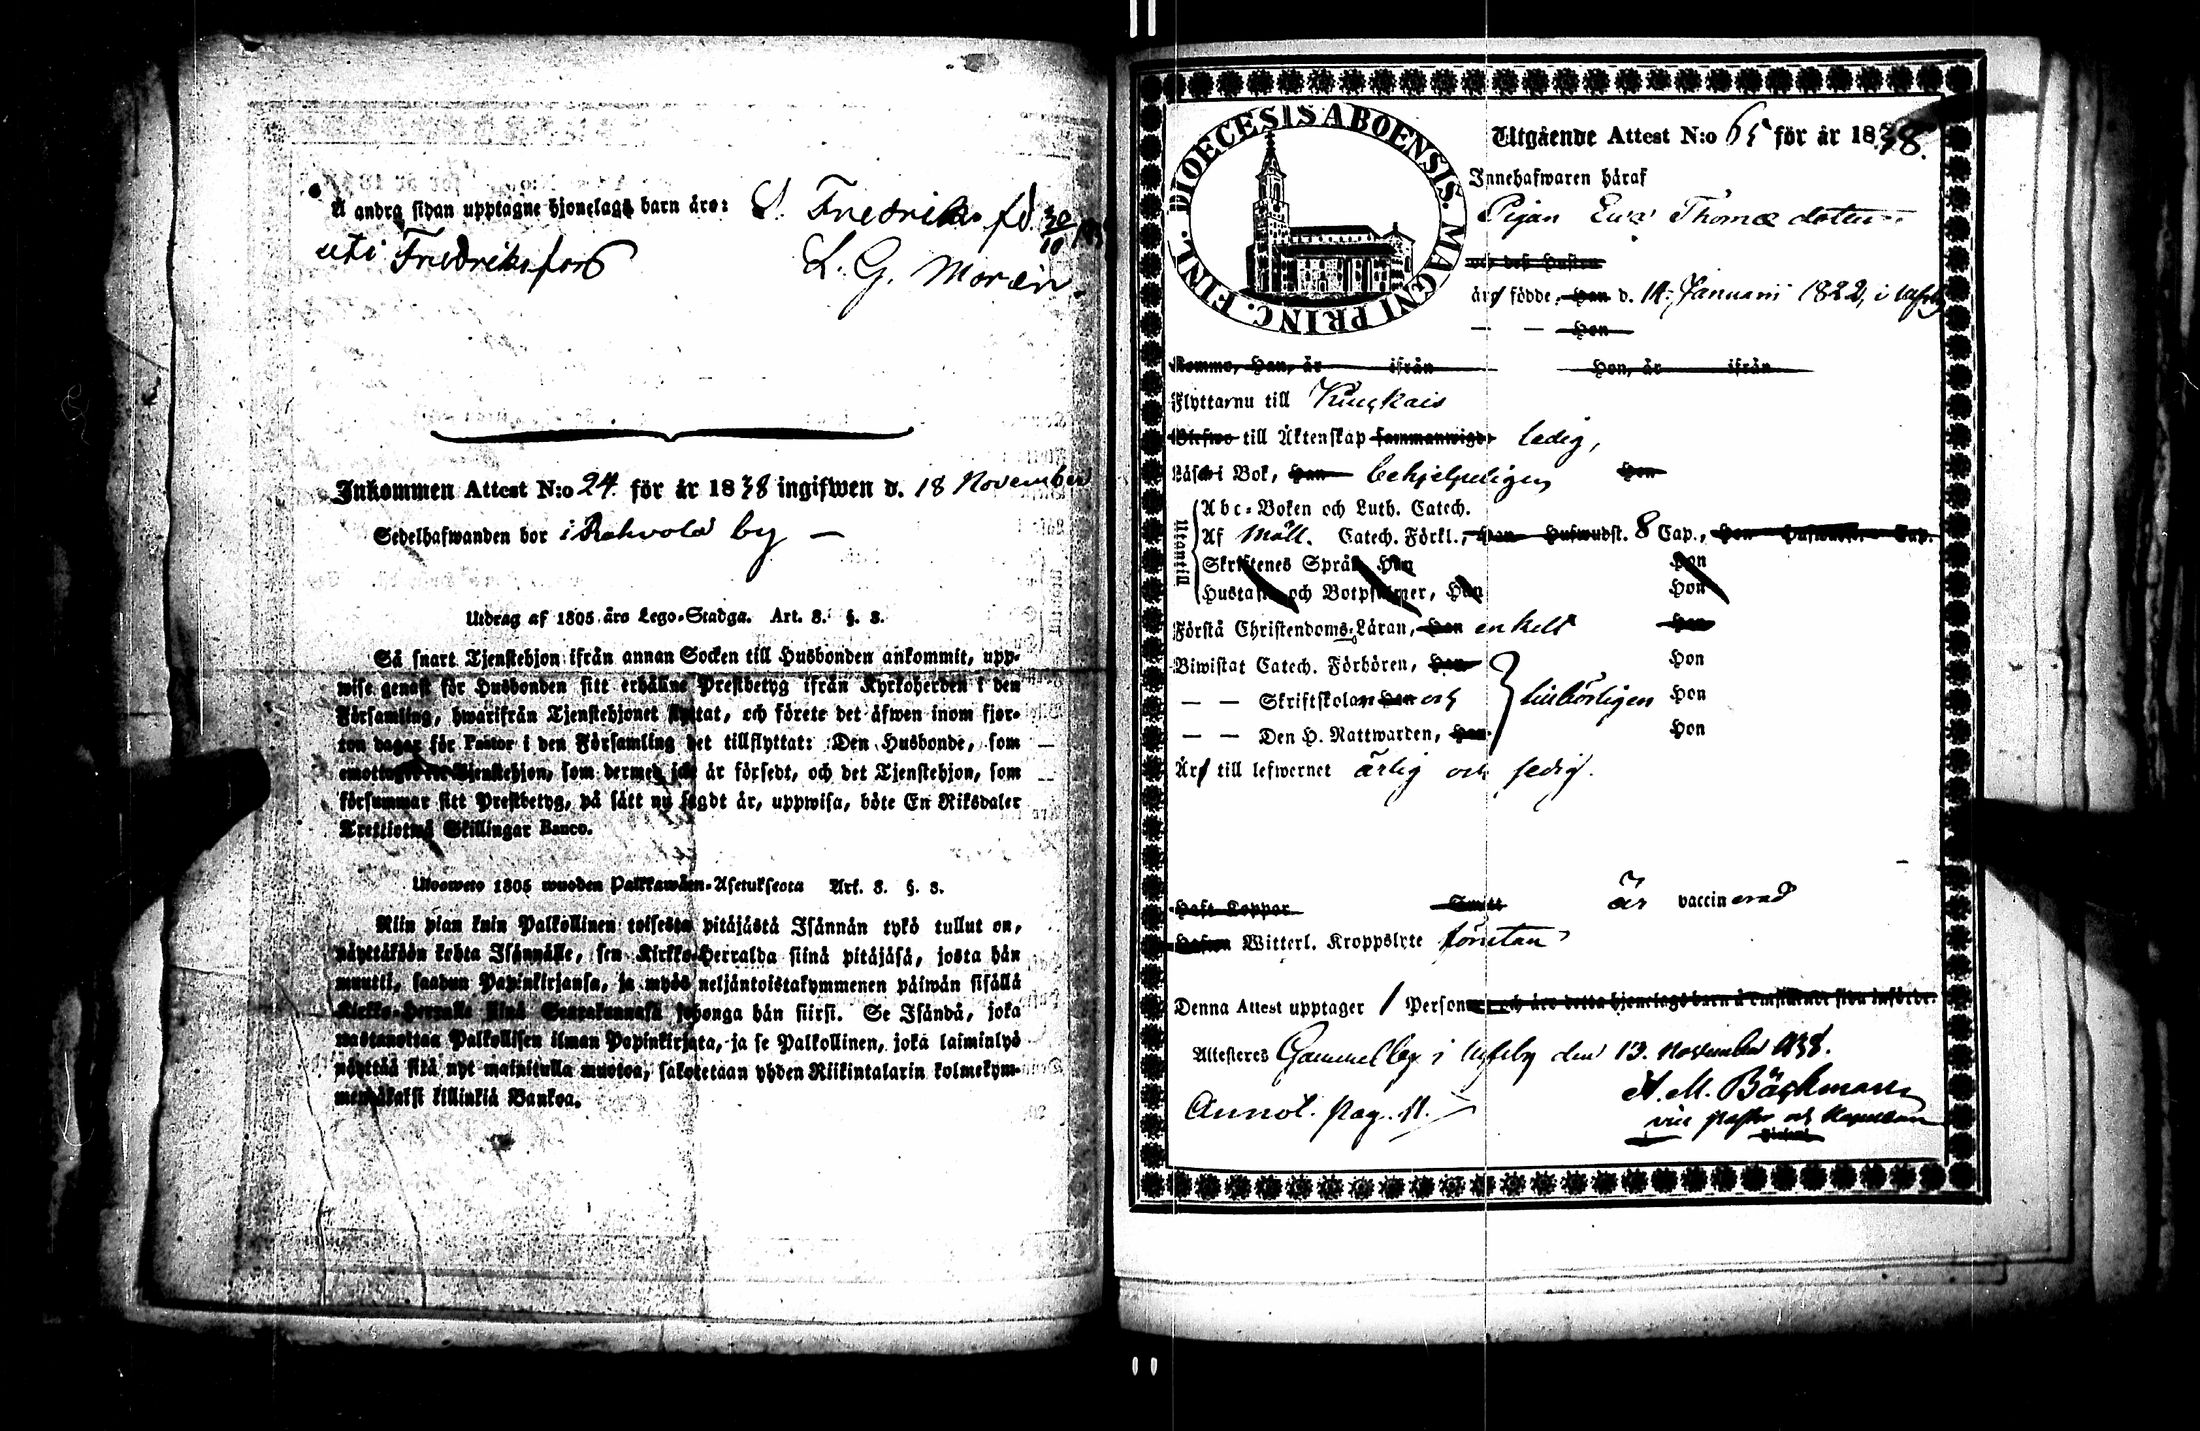 Å andra sidan upptagne hjonelags barn äro: S. Fredrik, fd. 30/10
uti Fredriksfors L. G. Morén.
Inkommen Attest N:o 24. för år 1838 ingifwen d. 18 November
Sedelhafwanden bor i Rahvola by —
Utdrag af 1805 års Lego-Stadga. Art. 8. §. 3.
Så snart Tjenstehjon ifrån annan Socken till Husbonden ankommit, upp-
wise genast för Husbonden sitt erhållne Prestbetyg ifrån Kyrkoherden i den
Församling, hwarifrån Tjenstehjonet flyttat, och förete det äfwen inom fjor-
ton dagar för Pastor i den Församling det tillflyttat: Den Husbonde, som
emottager ett Tjenstehjon, som dermed icke är försedt, och det Tjenstehjon, som
försummar sitt Prestbetyg, på sätt nu sagdt är, uppwisa, böte En Riksdaler
Trettiotwå Skillingar Banco.
Ulosweto 1805 wuoden Palkkawäen-Asetuksesta Art. 8. §. 3.
Niin pian kuin Palkollinen toisesta pitäjästä Isännän tykö tullut on,
näyttäköön kohta Isännälle, sen Kirkko-Herralda siinä pitäjäsä, josta hän
muutti, saadun Papinkirjansa, ja myös neljäntoistakymmenen päiwän sisällä
Kirkko-Herralle siinä Seurakunnasa johonga hän siirsi. Se Isändä, joka
wastanottaa Palkollisen ilman Papinkirjata, ja se Palkollinen, joka laiminlyö
näyttää sitä nyt mainitulla muotoa, sakotetaan yhden Riikintalarin kolmekym-
mendäkaksi killinkiä Bankoa.
DIOECESIS ABOENSIS. MAGNI PRINC. FINL.
Utgående Attest N:o 65 för år 1838.
Innehafwaren häraf
Pigan Ewa Thomæ dotter
och dess Hustru
äro födde, Han d. 14. Januari 1822, i Ulfsby
— — Hon
Komme, Han, år ifrån Hon, år ifrån
Flyttar nu till Kungkais
Blefwo till Äktenskap sammanwigde ledig,
Läsa i Bok, Han behjelpeligen Hon
Utantill
Abc-Boken och Luth. Catech.
Af Möll. Catech. Förkl., Han Hufwudst. 8 Cap., Hon Hufwudst. Cap.
Skriftenes Språk Han Hon
Hustaflan och Botpsalmer, Han Hon
Förstå Christendoms-Läran, Han enkelt Hon
Biwistat Catech. Förhören, Han Hon
— — Skriftskolan Han och behörigen Hon
— — Den H. Nattwarden, Han Hon
Äro till lefwernet ärlig och sedig.
Haft Koppor Smitt är vaccinerad
Hafwa Witterl. Kroppslyte förutan
Denna Attest upptager 1 Personer och äro detta hjonelags barn å omstående sida införde.
Attesteres Gammelby i Ulfsby den 13. November 1838.
A. M. Bäckman
Annot. pag. 11. vice pastor och Kapellan